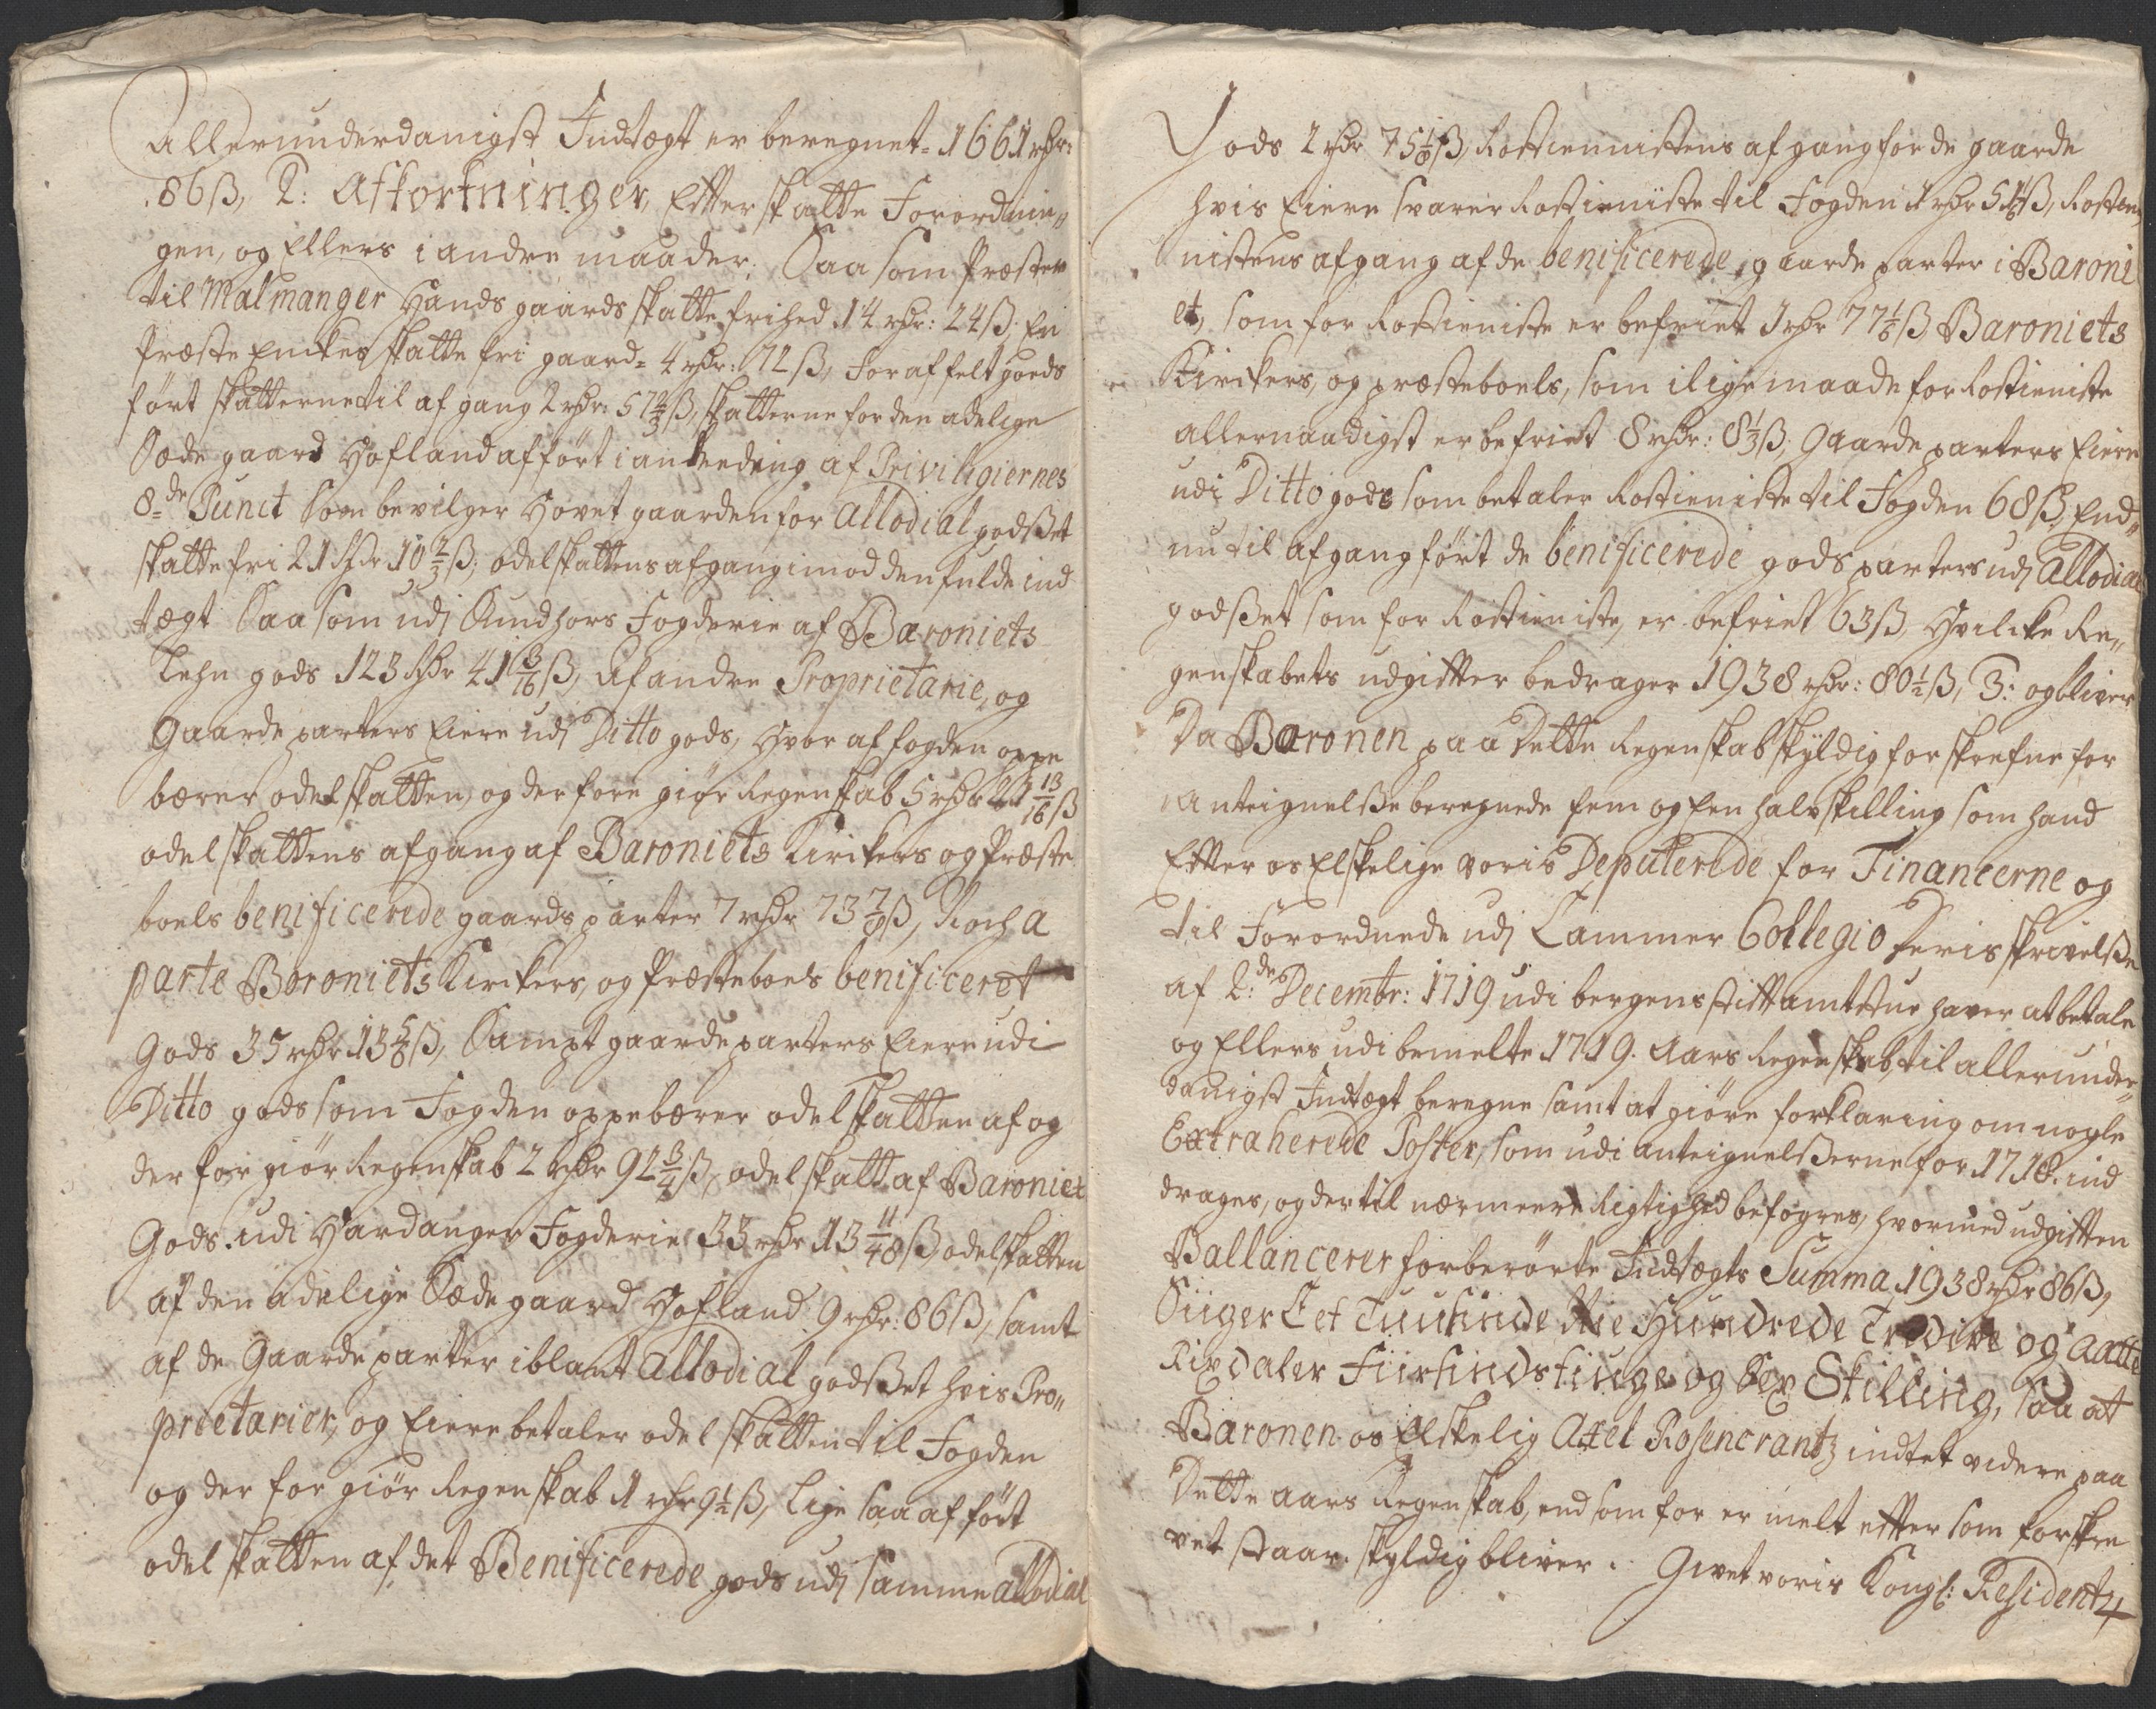 Allerunderdanigst Indtægt er beregnet = 1661 rdr:
86 ß, 2: Afkortninger, Effter skatte Forordnin„
gen, og Ellers i andre maader. Saa som Præsten
til Malmanger Hands gaards skatte frihed 14 rdr: 24 ß, En
Præste Enckes skatte fri gaard = 4 rdr: 72 ß, For affelt goeds
ført skatterne til afgang 2 rdr: 57 2/3 ß, skatterne for den adelige
Sæde gaard Hofland afført i anleedning af Priviligiernes
8de Punct Som bevilger Hovet gaarden for Allodial godsset
skatte fri 21 rdr 10 2/3 ß, odelskattens afgang imod den fulde ind
tægt Saa som udj Sundhors Fogderie af Baroniets
Lehn gods 123 rdr 41 3/16 ß, Af andre Proprietarie, og
Gaarde parters Eiere udj Ditto gods, Hvor af fogden oppe
bærer odelskatten, og derfore giør Regenskab 5 rdr 21 13/16 ß
odelskattens afgang af Baroniets Kirckers og Præste
boels benificerede gaards parter 7 rdr 73 7/8 ß, Noch a
parte Baroniets Kirckers, og Præsteboels benificeret
Gods 35 rdr 13 5/8 ß, Sampt gaarde parters Eiere udi
Ditto gods som Fogden oppebærer odelskatten af og
der for giør Regenskab 2 rdr 92 3/4 ß, odelskatt af Baroniet
Gods udi Hardanger Fogderie 33 rdr 13 11/48 ß, odelskatten
af den adelige Sæde gaard Hofland 9 rdr: 86 ß, samt
af de Gaarde parter iblant Allodial godsset hvis Pro„
prietarier, og Eiere betaler odelskatten til Fogden
og der for giør Regenskab 1 rdr 9 1/2 ß, Lige saa afført
odelskatten af det Benificerede gods udj samme Allodial
Gods 2 rdr 75 1/8 ß, Rostienistens afgang for de gaarde
hvis Eiere svarer Rostieniste til Fogden 1 rdr 51 ß, Rostie
nistens afgang af de benificerede gaarde parter i Baroni
et, som for Rostieniste er befriet 1 rdr 77 1/8 ß Baroniets
Kirckers, og præsteboels, som i lige maade for Rostieniste
allernaadigst er befriet 8 rdr: 8 1/3 ß, Gaarde parters Eiere
udi Ditto gods som betaler Rostieniste til Fogden 68 ß, End„
nu til afgang ført de benificerede gods parter udj Allodial
godsset som for Rostieniste, er befriet 63 ß, Hvilcke Re„
genskabets udgiffter bedrager 1938 rdr: 80 1/2 ß, 3: og bliver
Da Baronen paa Dette Regenskab skyldig forskrefne for
Anteignelsse beregnede fem og Een halv skilling som hand
Effter os Elskelige voris Deputerede for Financerne og
til Forordnede udj Cammer Collegio Deris skrivelsse
af 2de Decembr: 1719 udi bergens stifftamtstue haver at betale
og Ellers udi bemelte 1719. Aars Regenskab, til allerunder„
danigst Indtægt beregne samt at giøre forklaring om nogle
Extraherede Poster, som udi anteignelsserne for 1718. ind
drages, og dertil nærmeere Rigtighed befoyres, hvormed udgifften
Ballancerer forberørte Indtægts Summa 1938 rdr 86 ß,
Siiger Eet Tuusinde Nie Hundrede Tredive og Aatte
Rixdaler Fiirsindstiuge og Sex Skilling, saa at
Baronen os Elskelig Axel Rosencrantz indtet videre paa
Dette aars Regenskab, end som for er melt effter som forskre
vet staar skyldig bliver. Givet voris Kongl: Residentz